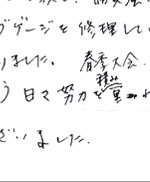 グゲージを修理してい
ました。 春季大会
う日々努力を積み重ね
ざいました。